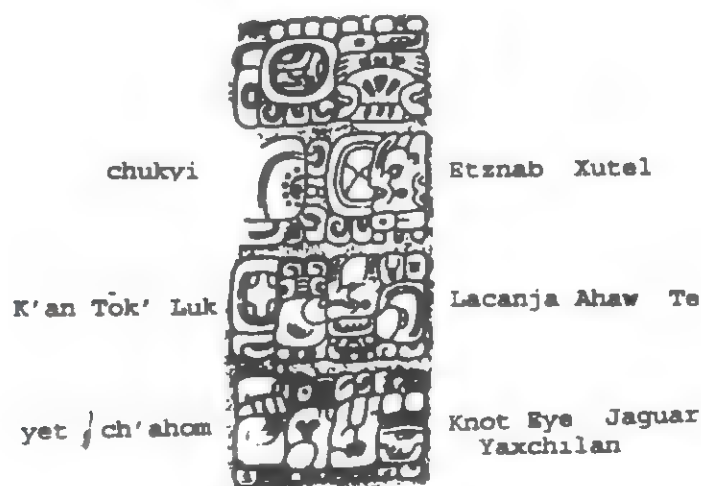 chukyi Etznab Xutel
K'an Tok' Luk Lacanja Ahaw Te
yet ch'ahom Knot Eye Jaguar
Yaxchilan